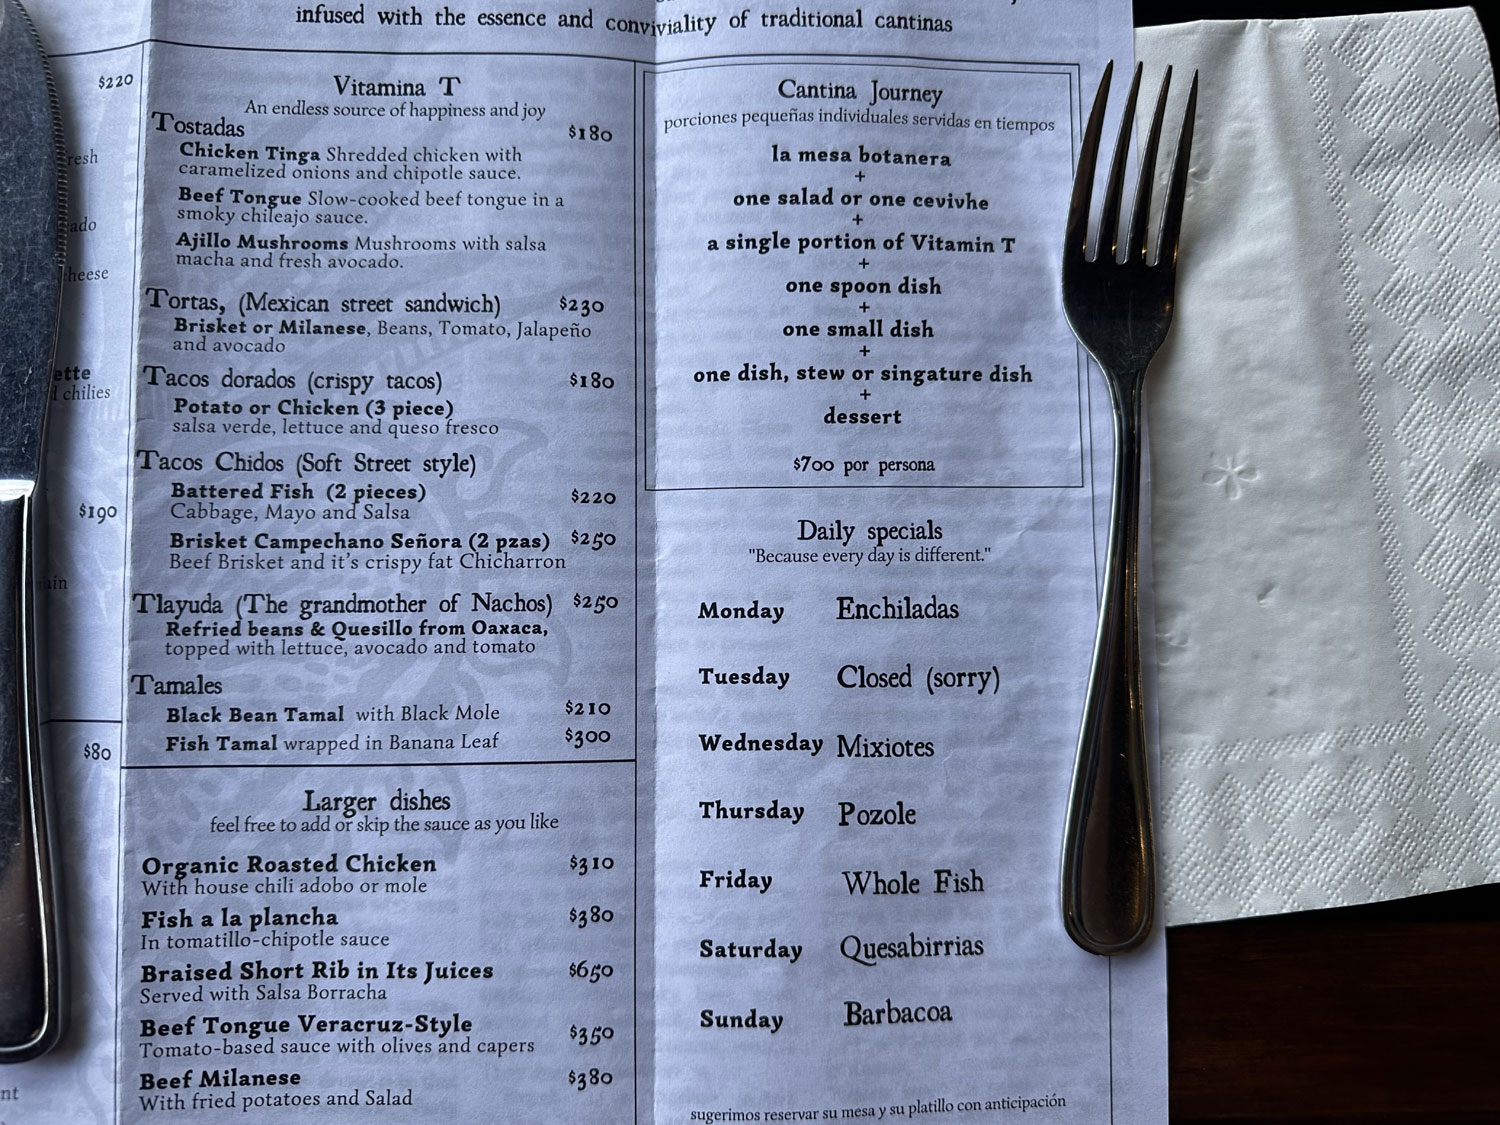 infused with the essence and conviviality of traditional cantinas
$220
resh
ado
heese
ette
chilies
$190
ain
$80
nt
Vitamina T
An endless source of happiness and joy
Tostadas $180
Chicken Tinga Shredded chicken with
caramelized onions and chipotle sauce.
Beef Tongue Slow-cooked beef tongue in a
smoky chileajo sauce.
Ajillo Mushrooms Mushrooms with salsa
macha and fresh avocado.
Tortas, (Mexican street sandwich) $230
Brisket or Milanese, Beans, Tomato, Jalapeño
and avocado
Tacos dorados (crispy tacos) $180
Potato or Chicken (3 piece)
salsa verde, lettuce and queso fresco
Tacos Chidos (Soft Street style)
Battered Fish (2 pieces) $220
Cabbage, Mayo and Salsa
Brisket Campechano Señora (2 pzas) $250
Beef Brisket and it's crispy fat Chicharron
Tlayuda (The grandmother of Nachos) $250
Refried beans & Quesillo from Oaxaca,
topped with lettuce, avocado and tomato
Tamales
Black Bean Tamal with Black Mole $210
Fish Tamal wrapped in Banana Leaf $300
Larger dishes
feel free to add or skip the sauce as you like
Organic Roasted Chicken $310
With house chili adobo or mole
Fish a la plancha $380
In tomatillo-chipotle sauce
Braised Short Rib in Its Juices $650
Served with Salsa Borracha
Beef Tongue Veracruz-Style $350
Tomato-based sauce with olives and capers
Beef Milanese $380
With fried potatoes and Salad
Cantina Journey
porciones pequeñas individuales servidas en tiempos
la mesa botanera
+
one salad or one cevivhe
+
a single portion of Vitamin T
+
one spoon dish
+
one small dish
+
one dish, stew or singature dish
+
dessert
$700 por persona
Daily specials
"Because every day is different."
Monday Enchiladas
Tuesday Closed (sorry)
Wednesday Mixiotes
Thursday Pozole
Friday Whole Fish
Saturday Quesabirrias
Sunday Barbacoa
sugerimos reservar su mesa y su platillo con anticipación